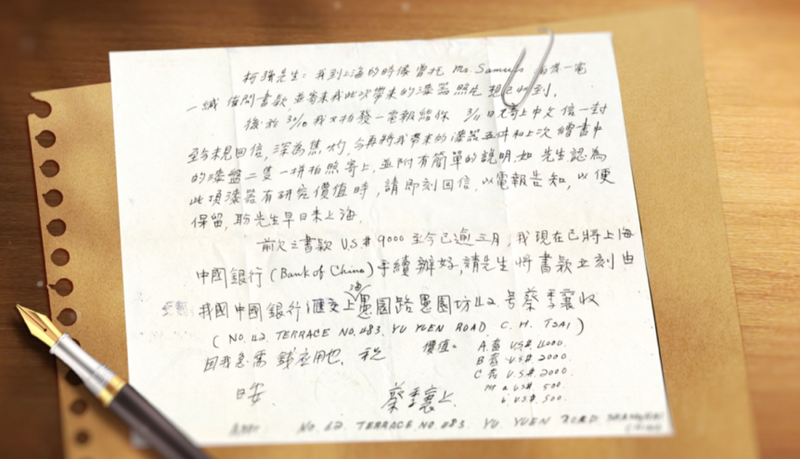 柯強先生：我到上海的時候曾托 Mr. Samuels 一電
一緘 信問書款 並寄來我此次帶來的漆器照片 想已收到，
後於 3/10 我又拍發一電報給你 3/11 日又寄上中文信一封
至今未見回信，深為焦灼，今再將我帶來的漆器五件和上次繒書中
的漆盤二隻一拼拍照寄上，並附有簡單的說明，如 先生認為
此項漆器有研究價值時，請即刻回信，以電報告知，以便
保留，盼先生早日來上海，
前次之書款 U.S.# 9000 至今已逾三月，我現在已將上海
中國銀行 (Bank of China) 手續辦好，請先生將書款立刻由
我國中國銀行匯交上海愚園路愚園坊42.号蔡季襄收
(NO. 42. TERRACE NO. 483. YU YUEN ROAD. C. H. TSAI)
因我急需錢应用也，祝 價值。 A.盒 US#. 4000.
B. US#. 2000.
C US#. 2000.
US#. 500.
日安. 蔡季襄上. US#. 500.
NO. 42. TERRACE NO. 483. YU. YUEN ROAD. SHANGHAI
CHINA